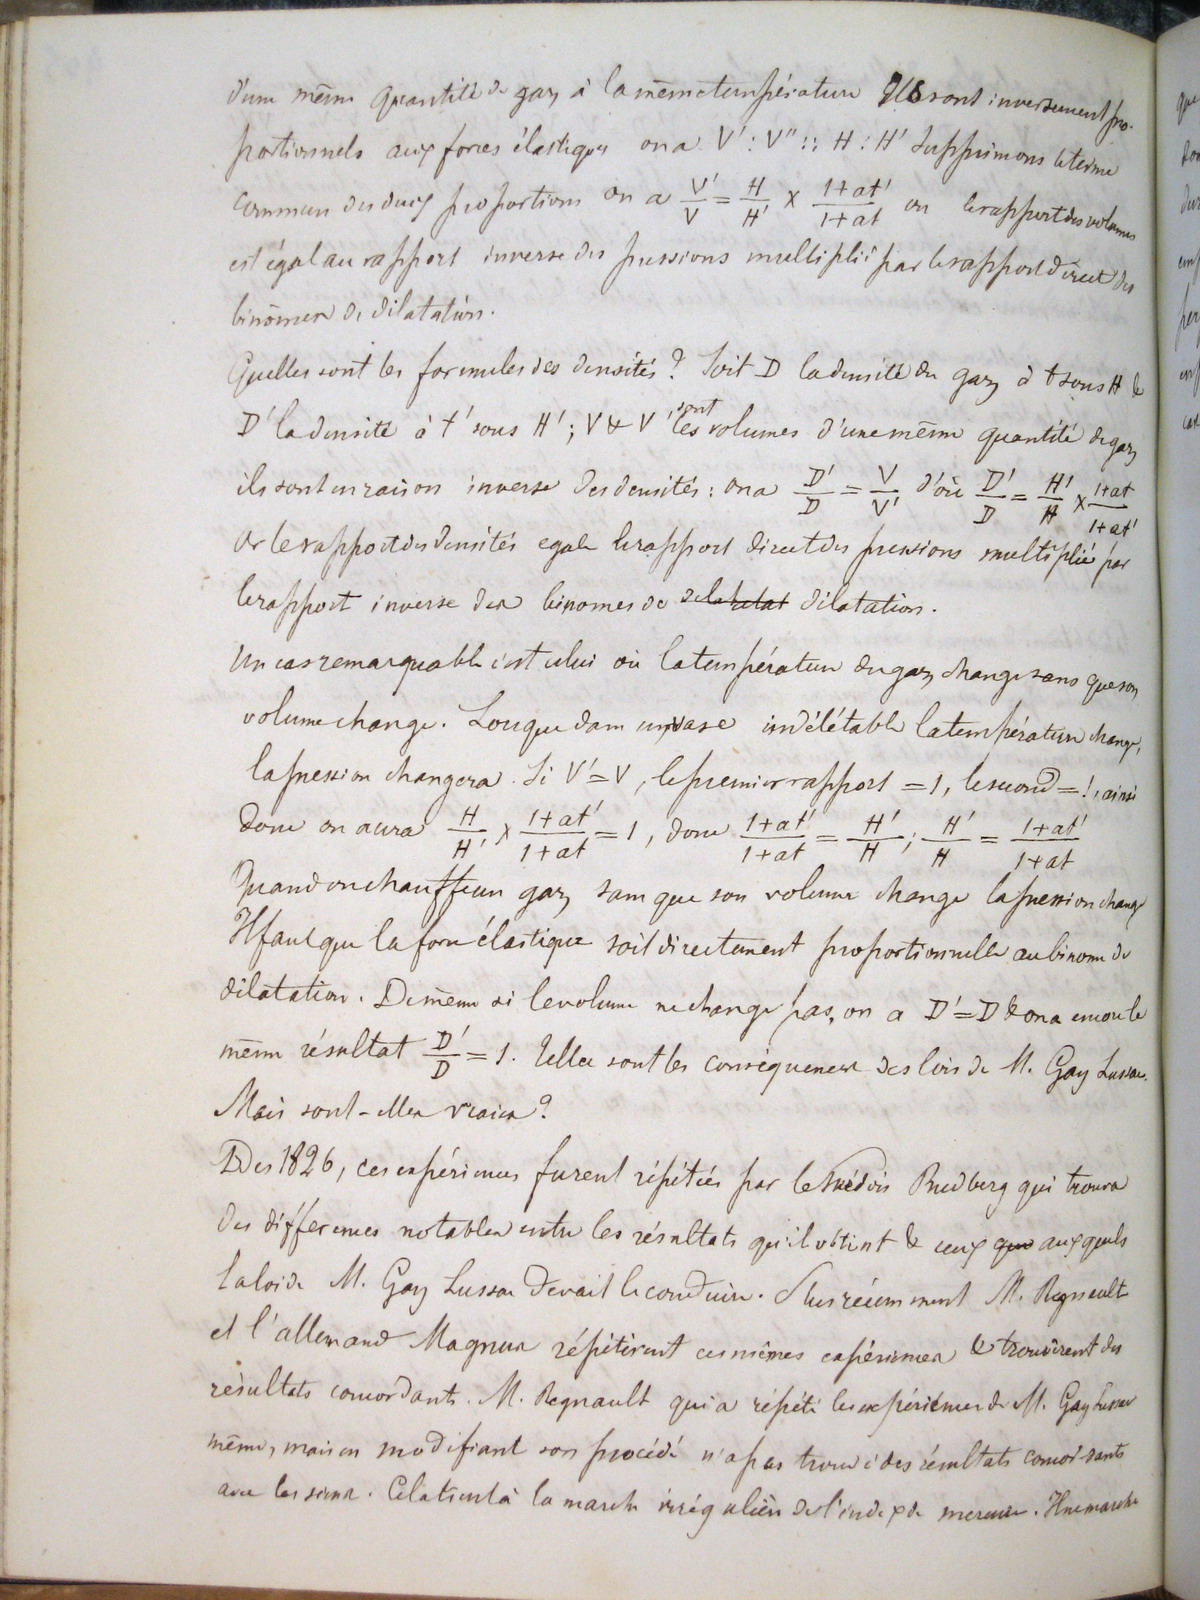 d'une même quantité de gaz à la même température Ils sont inversement pro-
portionnels aux forces élastiques on a V' : V" :: H : H' Supprimons le terme
commun des deux proportions on a V'/V = H/H' × 1+at'/1+at ou le rapport des volumes
est égal au rapport inverse des pressions multiplié par le rapport direct des
binômes de dilatation.
Quelles sont les formules des densités ? Soit D la densité du gaz à t sous H &
D' la densité à t' sous H' ; V & V' sont les volumes d'une même quantité de gaz
ils sont en raison inverse des densités : on a D'/D = V/V' d'où D'/D = H'/H × 1+at/1+at'
Or le rapport des densités egale le rapport direct des pressions multiplié par
le rapport inverse des binomes de dilatation.
Un cas remarquable c'est celui où la température du gaz change sans que son
volume change. Lorsque dans un vase indilatable la température change,
la pression changera. Si V'=V, le premier rapport = 1, le second = 1, ainsi
donc on aura H/H' × 1+at'/1+at = 1, donc 1+at'/1+at = H'/H ; H'/H = 1+at'/1+at
Quand on chauffe un gaz sans que son volume change la pression change
Il faut que la force élastique soit directement proportionnelle au binome de
dilatation. De même si le volume ne change pas, on a D'=D & on a encore le
même résultat D'/D = 1. Telles sont les conséquences des lois de M. Gay Lussac.
Mais sont-elles vraies ?
Dès 1826, ces expériences furent répétées par le Suédois Rudberg qui trouva
des différences notables entre les résultats qu'il obtint & ceux que auxquels
la loi de M. Gay Lussac devait le conduire. Plus récemment M. Regnault
et l'allemand Magnus répétèrent ces mêmes expériences & trouvèrent des
résultats concordants. M. Regnault qui a répété les expériences de M. Gay Lussac
même, mais en modifiant son procédé n'a pas trouvé des résultats concordants
avec les siens. Cela tient à la marche irrégulière de l'index de mercure. Une marche